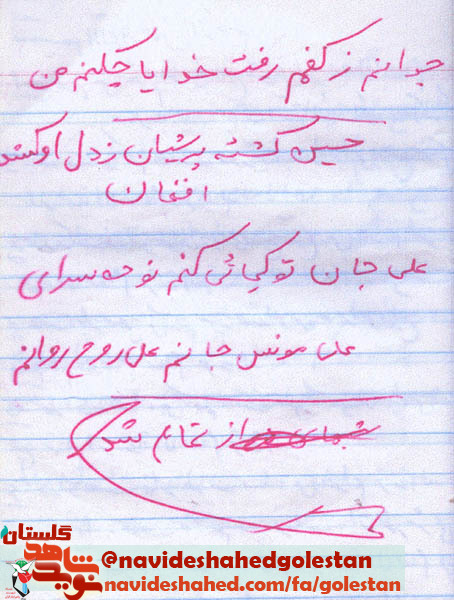 جوانم ز کفم رفت خدایا چکنم من
حسین کشته پریشان ز دل او کشد
افغان
علی جان تو کجائی کنم نوحه سرای
علی مونس جانم علی روح روانم
از تمام شد
گلستان
نوید شاهد
@navideshahedgolestan
navideshahed.com/fa/golestan